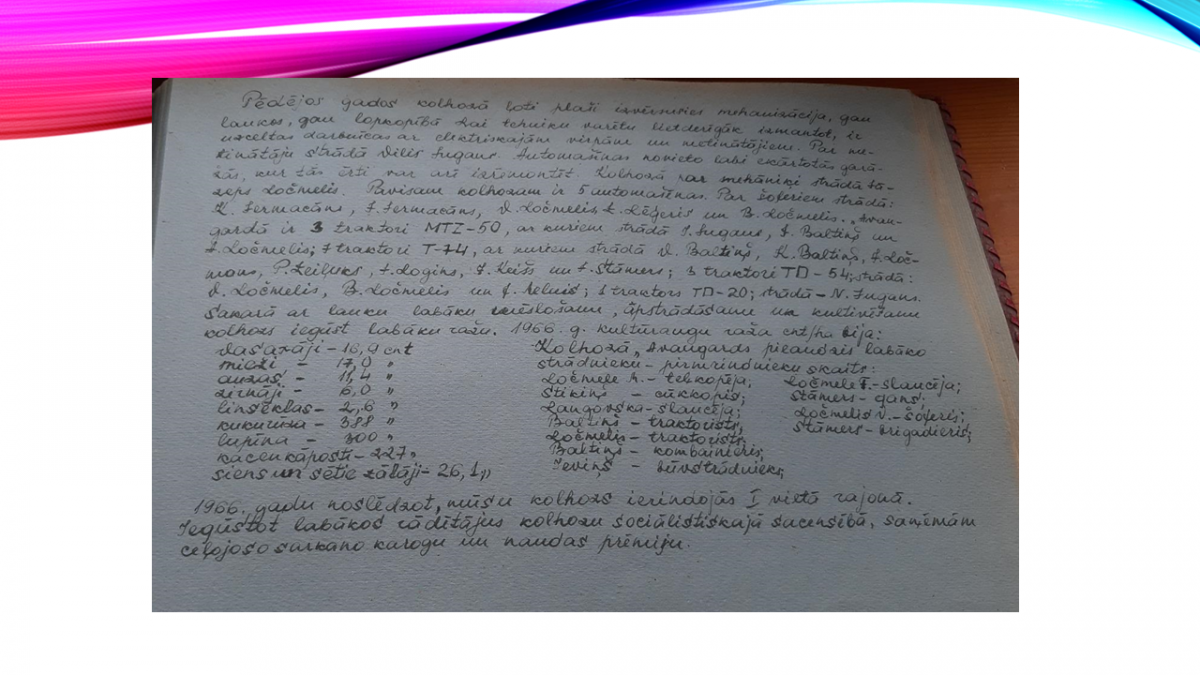 Pēdējos gados kolhozā ļoti plaši izvērsusies mehanizācija, gan
laukos, gan lopkopībā. Lai tehniku varētu lietderīgāk izmantot, ir
uzceltas darbnīcas ar elektriskajām virpām un metinātājiem. Par me-
tinātāju strādā Vilis Jugans. Automašīnas novieto labi iekārtotās garā-
žās, kur tās ērti var arī izremontēt. Kolhozā par mehāniķi strādā Jā-
zeps Ločmelis. Pavisam kolhozam ir 5 automašīnas. Par šoferiem strādā:
K. Sermacāns, J. Sermacāns, V. Ločmelis, Ločmelis. „Avan-
gardā ir 3 traktori MTZ-50, ar kuriem strādā J. Jugans, Baltiņš un
Ločmelis; 7 traktori T-74, ar kuriem strādā V. Baltiņš, K. Baltiņš, Loč-
P. Logins, un Stāmers; 3 traktori TD-54; strādā:
V. Ločmelis, B. Ločmelis un 1 traktors TD-20; strādā - N. Jugans.
Sakarā ar lauku labāku mēslošanu, apstrādāšanu un kultivēšanu
kolhozs iegūst labāku ražu. 1966. g. kultūraugu raža cnt/ha bija:
vasarāji - 16,9 cnt
mieži - 17,0 "
auzas - 11,4 "
zirņāji - 6,0 "
linsēklas - 2,6 "
kukurūza - 388 "
lupīna - 300 "
kācenkāposti - 227 "
siens un sētie zālāji - 26,1 "
Kolhozā „Avangards pieaudzis labāko
strādnieku - pirmrindnieku skaits:
Ločmele - teļkopēja;
Stikiņš - cūkkopis;
Langovska - slaucēja;
Baltiņš - traktorists;
Ločmelis - traktorists;
Baltiņš - kombainieris;
Ieviņš - būvstrādnieks;
Ločmele F. - slaucēja;
Stāmers - gans;
Ločmelis V. - šoferis;
Stāmers - brigadieris;
1966. gadu noslēdzot, mūsu kolhozs ierindojās I vietā rajonā.
Iegūstot labākos rādītājus kolhozu sociālistiskajā sacensībā, saņēmām
ceļojošo sarkano karogu un naudas prēmiju.